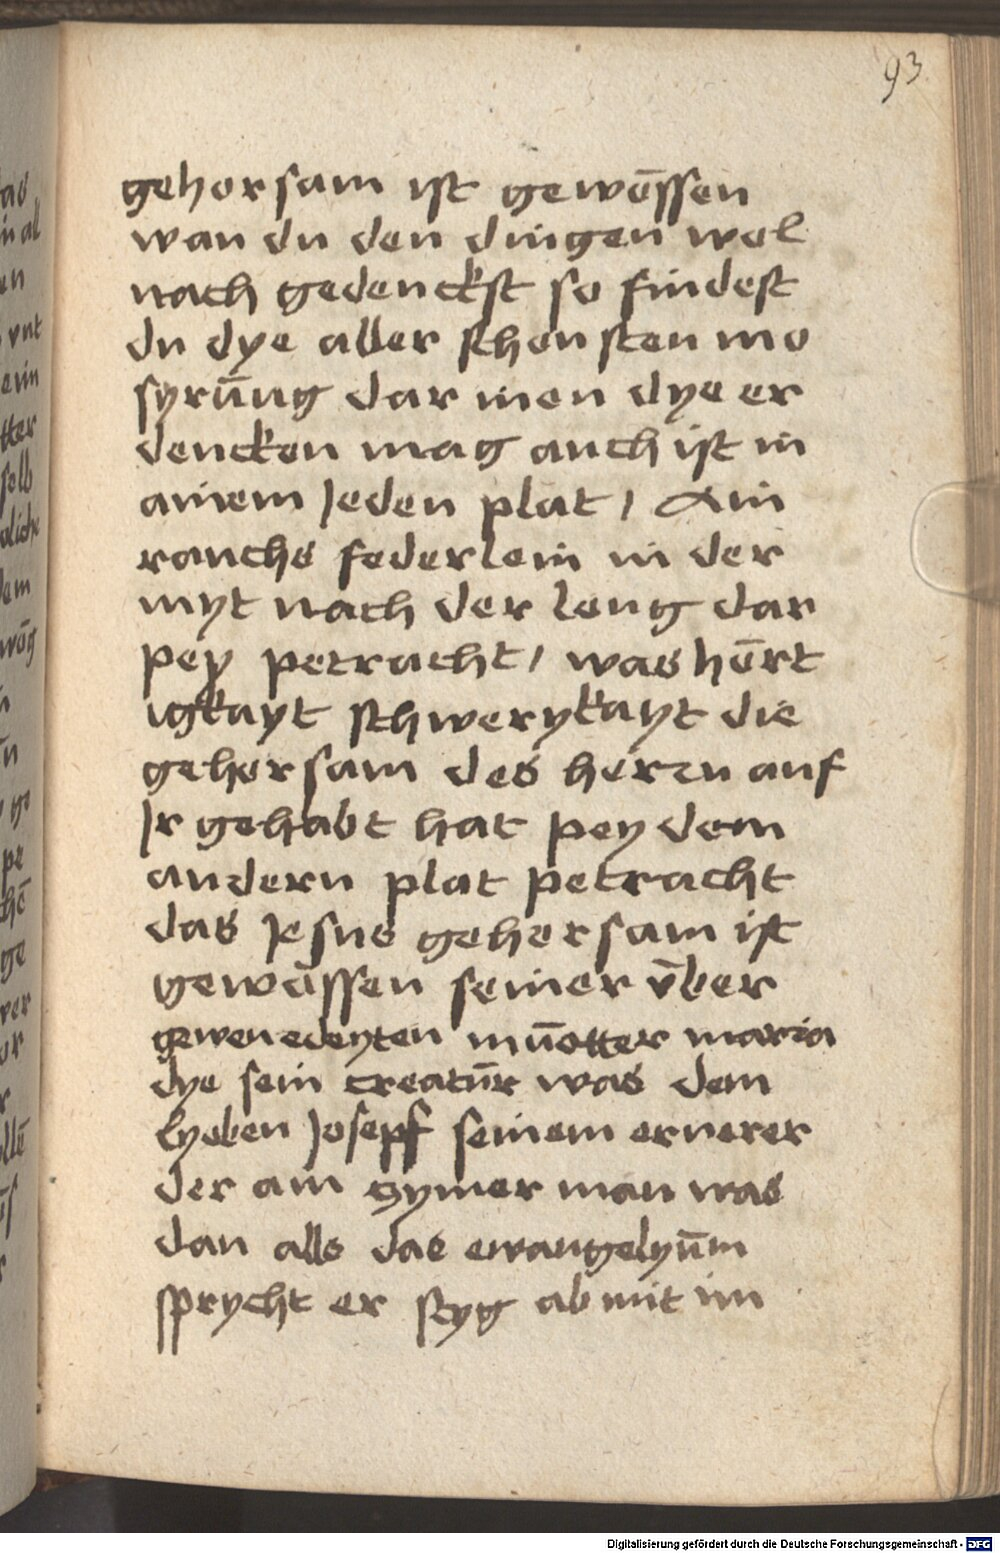 93
gehorsam ist gewēssen
wan du den dingen wol
nach gedenckst so findest
du dye aller schonsten mo
syrūng dar inen dye er
dencken mag auch ist in
ainem Jeden plat / Ain
rauchs federlein in der
myt nach der leng dar
pey petracht / was hērt
igkayt schwerykayt die
gehorsam des herrn auf
Jr gehabt hat pey dem
andern plat petracht
das Jesus gehorsam ist
gewēssen seiner v̄ber
gewenedeyten mūotter maria
dye sein creatūr was dem
lyeben Josepf seinem ernerer
der ain zymer man was
dan alls das ewangelyūm
sprycht er styg ab mit im
Digitalisierung gefördert durch die Deutsche Forschungsgemeinschaft - DFG